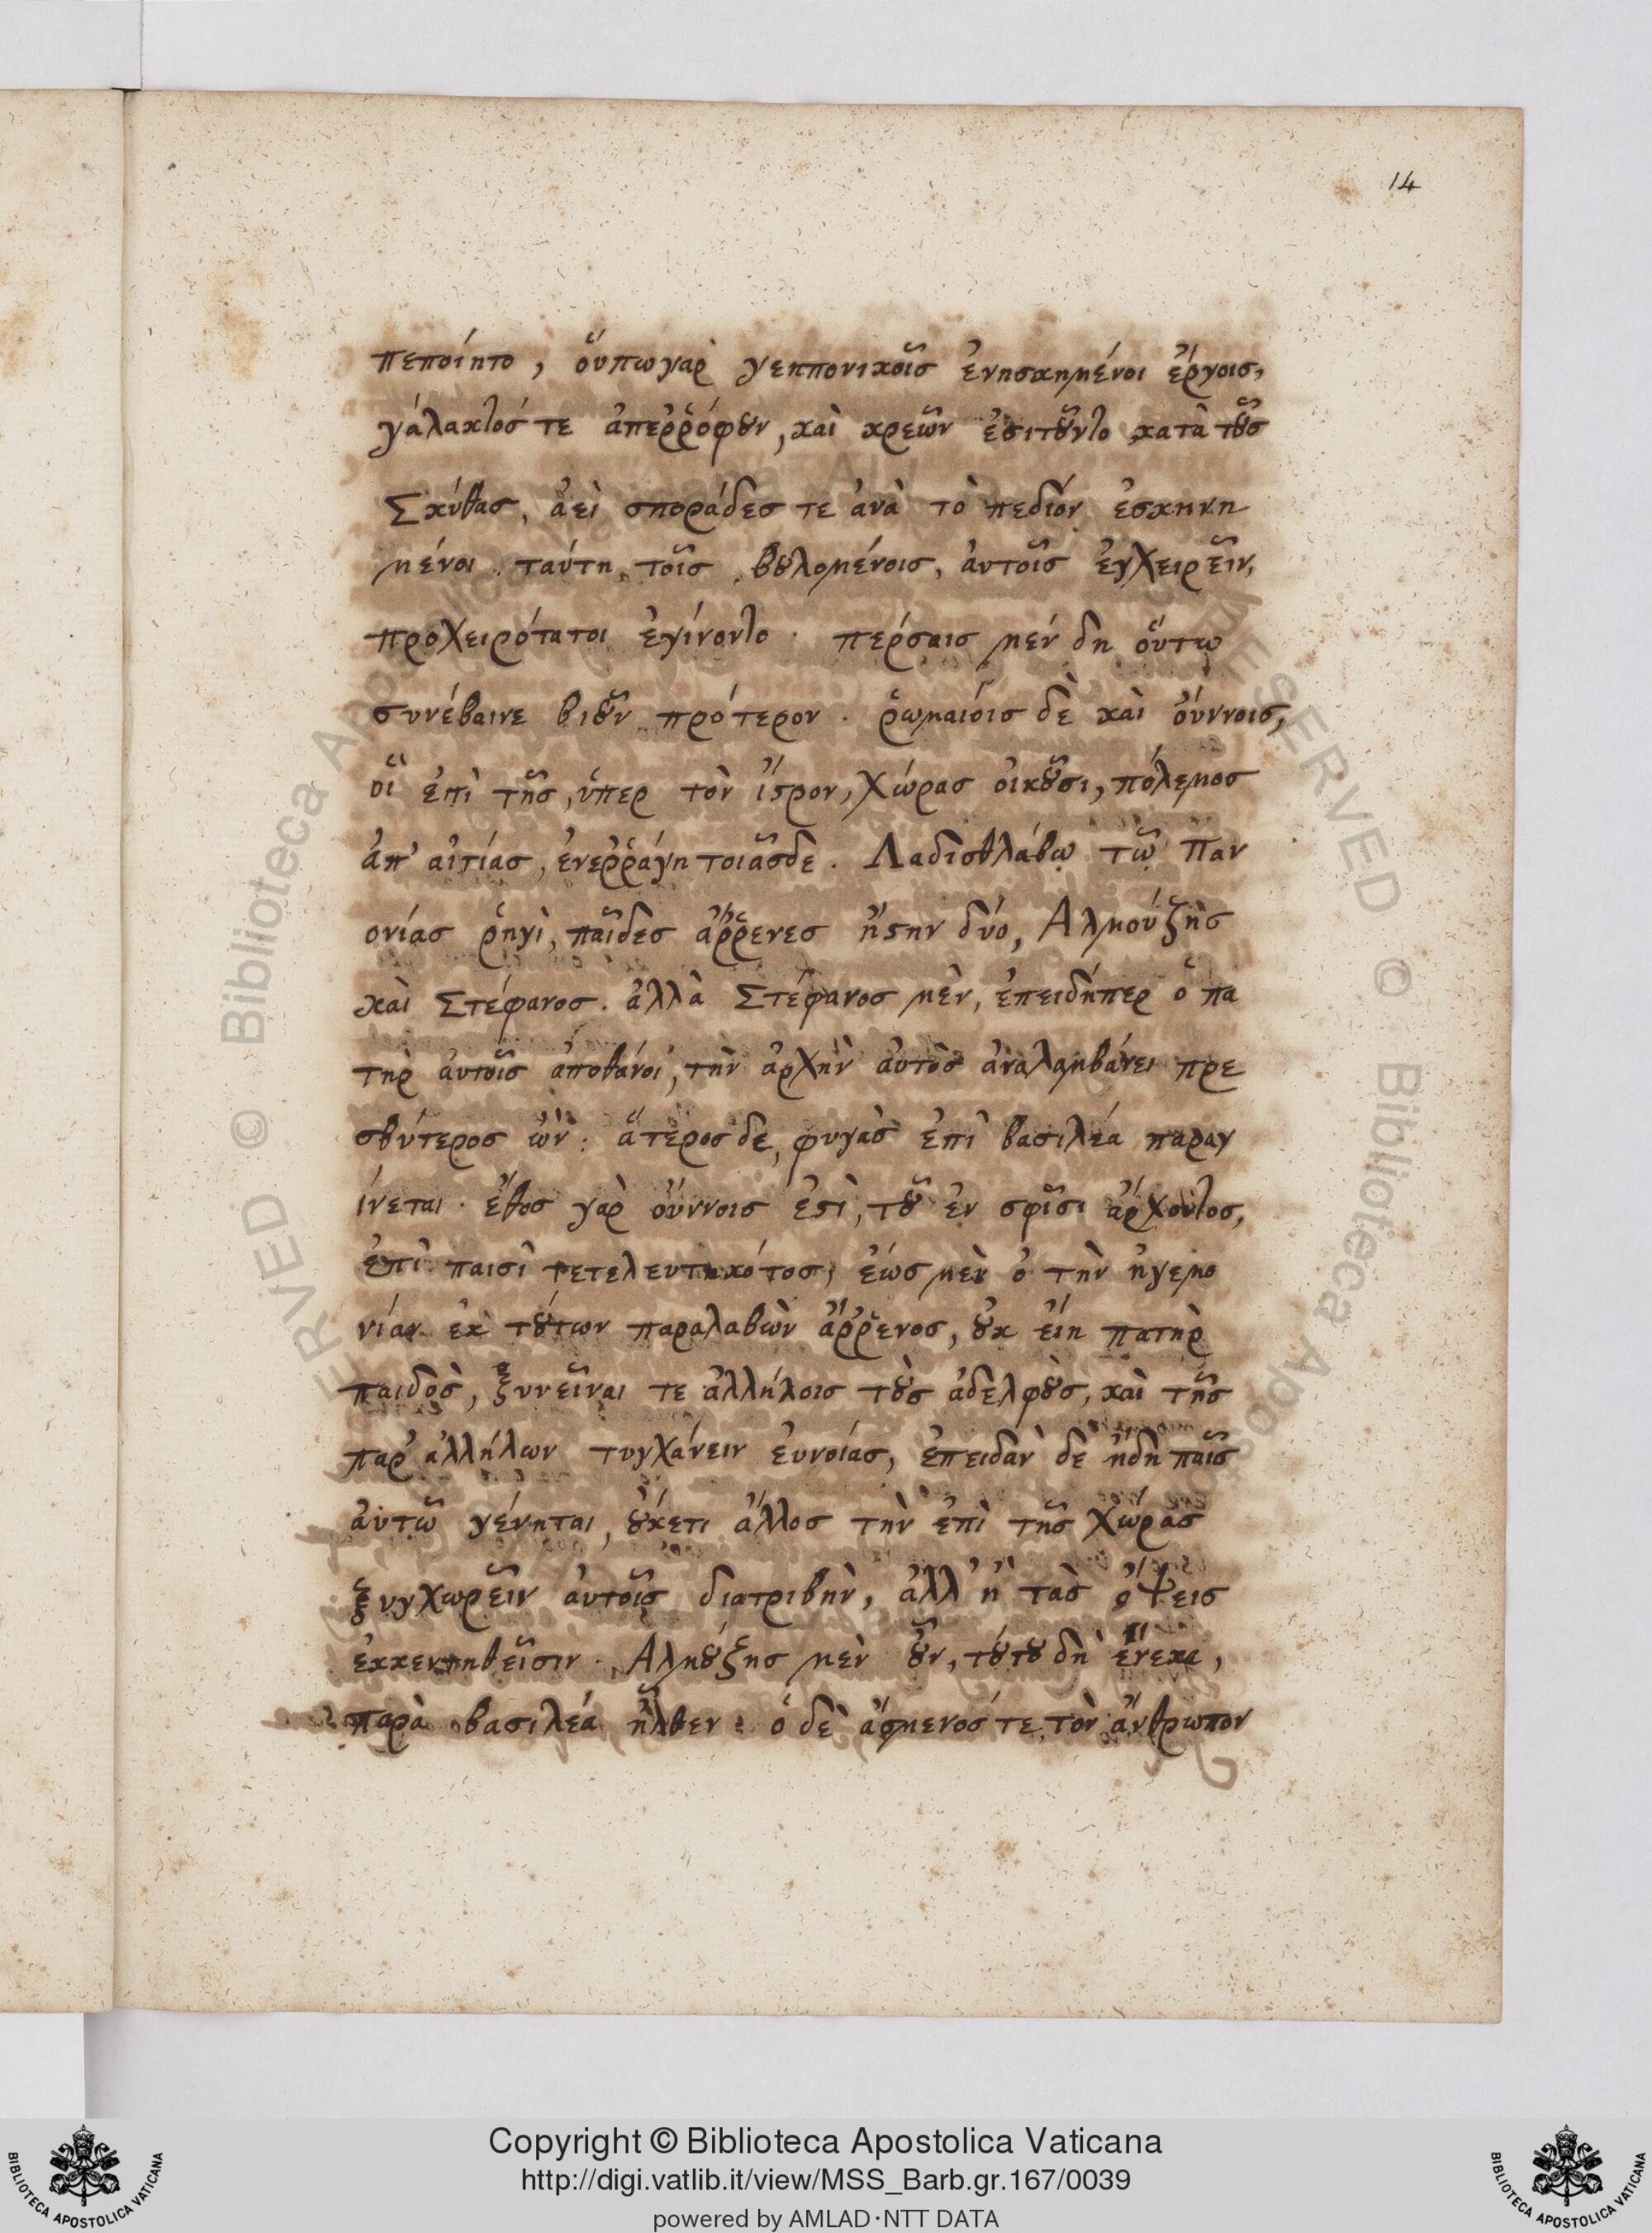 14
πεποίητο, ὄυπωγαρ γεηπονικοῖς ἐνησκημένοι ἔργοις,
γάλακτός τε ἀπεῤῥόφουν, καὶ κρεῶν ἐσιτοῦντο κατὰ τοῦς
Σκύθας, ἀεὶ σποράδες τε ἀνὰ τὸ πεδίον ἐσκηνη
μένοι ταύτη, τοῖς βουλομένοις, ἀυτοῖς ἐγχειρεῖν,
προχειρότατοι ἐγίνοντο. πέρσαις μέν δη ὅυτω
συνέβαινε βιοῦν πρότερον. ῥωμαίοις δὲ καὶ ὀύννοις,
οἳ ἐπὶ τῆς, ὕπερ τὸν ἴστρον, χώρας οἰκοῦσι, πόλεμος
ἀπ' αἰτίας, ἐνεῤῥάγη τοιᾶσδε. Λαδισθλάβῳ τῶ Παν
ονίας ῥηγὶ, παῖδες ἄῤῥενες ἤστην δύο, Αλμούζης
καὶ Στέφανος. ἀλλὰ Στέφανος μὲν, ἐπειδήπερ ὁ πα
τηρ ἀυτοῖς ἀποθάνοι, τὴν ἀρχὴν ἀυτὸς ἀναλαμβάνει πρε
σβύτερος ὢν: ἅτερος δε, φυγὰς ἐπὶ βασιλέα παραγ
ίνεται. ἔθος γαρ ὄυννοις ἐστὶ, τοῦ ἐν σφῖσι ἄρχοντος,
ἐπὶ παισὶ τετελευτηκότος, ἑώς μὲν ὁ τὴν ἡγεμο
νίαν ἐκ τούτων παραλαβὼν ἄῤῥενος, οὐκ εἴη πατηρ
παιδὸς, ξυνεῖναι τε ἀλλήλοις τοὺς ἀδελφοὺς, καὶ τῆς
παρ' ἀλλήλων τυγχάνειν ἐυνοίας, ἐπειδὰν δὲ ἤδη παῖς
ἀυτῶ γένηται, οὐκέτι ἄλλος τὴν ἐπὶ τῆς χώρας
ξυγχωρεῖν ἀυτοῖς διατριβὴν, ἀλλ' ἢ τὰς ὄψεις
ἐκκεντηθεῖσιν. Αλμούζης μὲν οὖν, τούτου δὴ ἕνεκα,
παρὰ βασιλέα ἦλθεν: ὁ δὲ ἄσμενός τε τὸν ἄνθρωπον
Copyright © Biblioteca Apostolica Vaticana
http://digi.vatlib.it/view/MSS_Barb.gr.167/0039
powered by AMLAD·NTT DATA